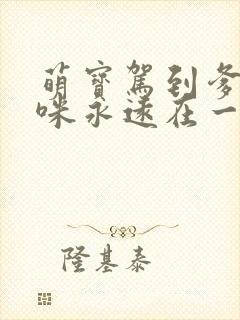 萌寶駕到爹
咪永遠在一
隆基泰